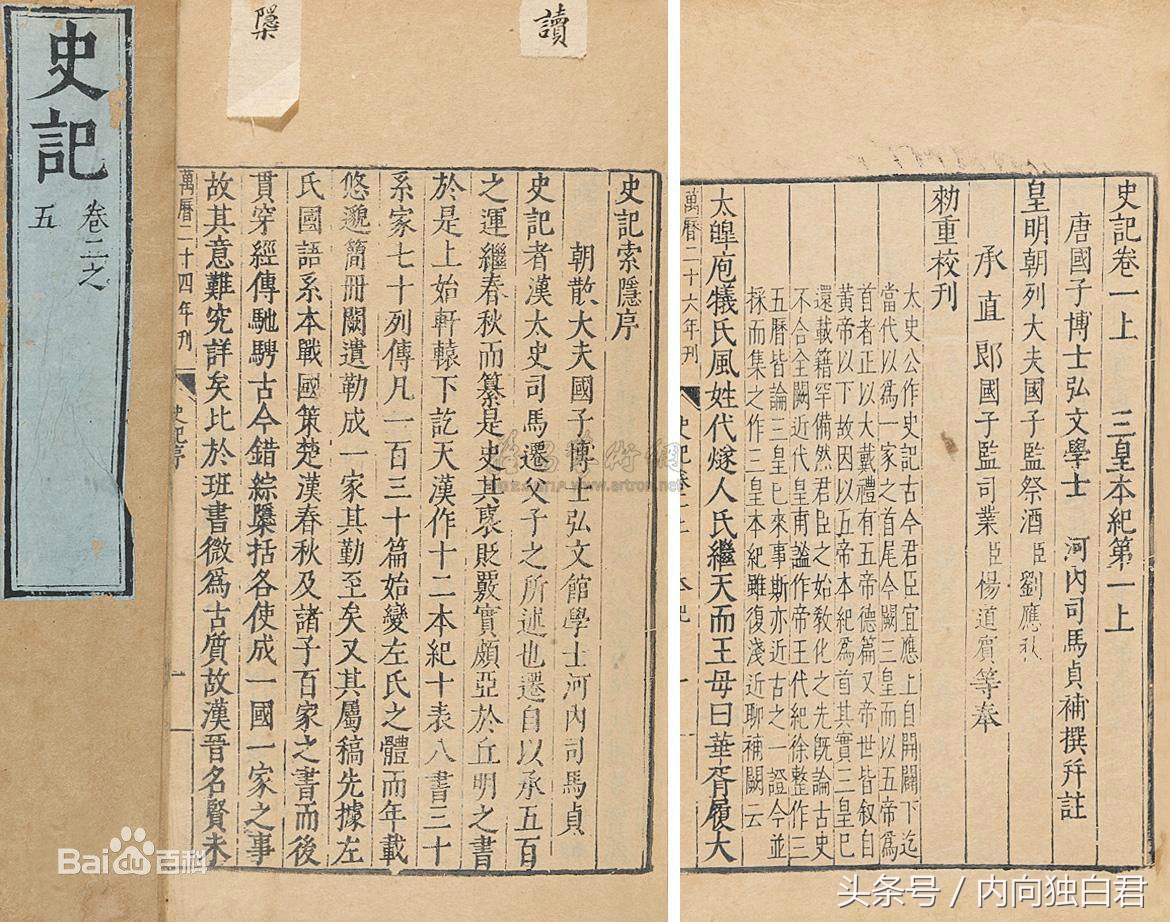 史記
卷二之
五
檃
讀
史記索隱序
朝散大夫國子博士弘文館學士河內司馬貞
史記者漢太史司馬遷父子之所述也遷自以承五百
之運繼春秋而纂是史其褒貶覈實頗亞於丘明之書
於是上始軒轅下訖天漢作十二本紀十表八書三十
系家七十列傳凡一百三十篇始變左氏之體而年載
悠邈簡冊闕遺勒成一家其勤至矣又其屬稿先據左
氏國語系本戰國策楚漢春秋及諸子百家之書而後
貫穿經傳馳騁古今錯綜檃括各使成一國一家之事
故其意難究詳矣比於班書微為古質故漢晉名賢未
萬曆二十四年刊
史記序
一
史記卷一上 三皇本紀第一上
唐國子博士弘文學士 河內司馬貞補撰幷註
皇明朝列大夫國子監祭酒臣劉應秋
承直郎國子監司業臣楊道賓等奉
勑重校刊
太史公作史記古今君臣宜應上自開闢下迄
當代以爲一家之首尾今闕三皇而以五帝爲
首者正以大戴禮有五帝德篇又帝世皆叙自
黃帝以下故因以五帝本紀爲首其實三皇已
還載籍罕備然君臣之始教化之先旣論古史
不合全闕近代皇甫謐作帝王代紀徐整作三
五曆皆論三皇已來事斯亦近古之一證今並
採而集之作三皇本紀雖復淺近聊補闕云
太皥庖犧氏風姓代燧人氏繼天而王母曰華胥履大
萬曆二十六年刊
史記卷一
本紀
一
Bai百科
www.artron.net
头条号 / 内向独白君